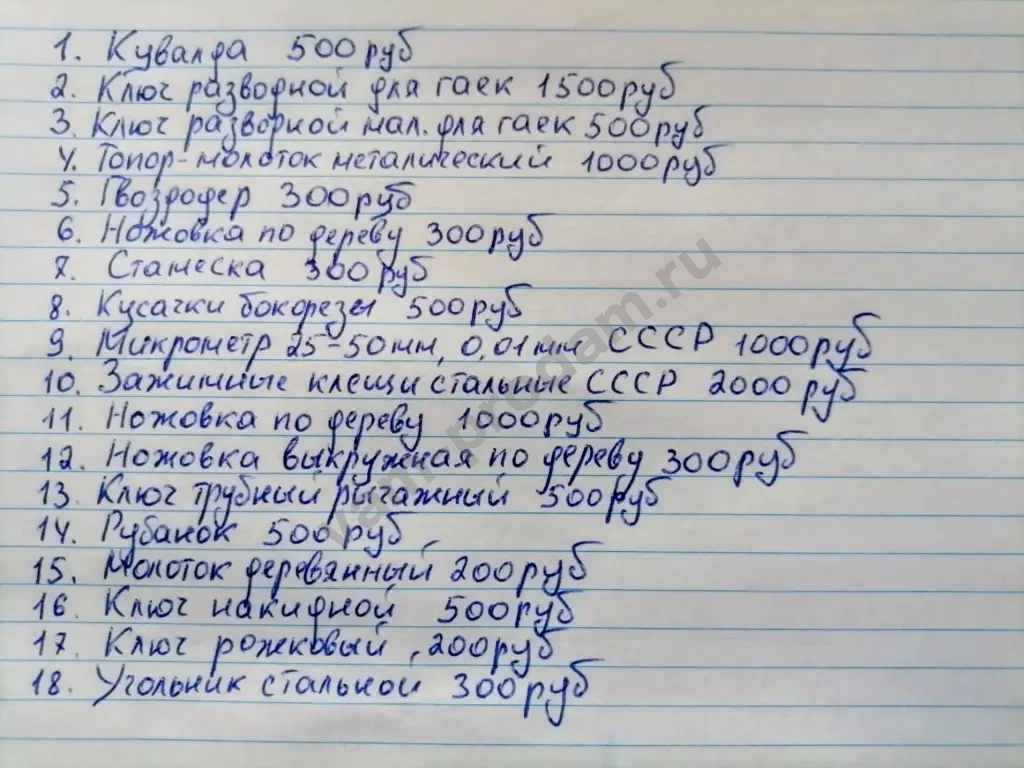 1. Кувалда 500 руб
2. Ключ разводной для гаек 1500 руб
3. Ключ разводной мал. для гаек 500 руб
4. Топор-молоток металический 1000 руб
5. Гвоздодер 300 руб
6. Ножовка по дереву 300 руб
7. Стамеска 300 руб
8. Кусачки бокорезы 500 руб
9. Микрометр 25-50мм, 0,01мм СССР 1000 руб
10. Зажимные клещи стальные СССР 2000 руб
11. Ножовка по дереву 1000 руб
12. Ножовка выкружная по дереву 300 руб
13. Ключ трубный рычажный 500 руб
14. Рубанок 500 руб
15. Молоток деревянный 200 руб
16. Ключ накидной 500 руб
17. Ключ рожковый 200 руб
18. Угольник стальной 300 руб
vam-prodam.ru